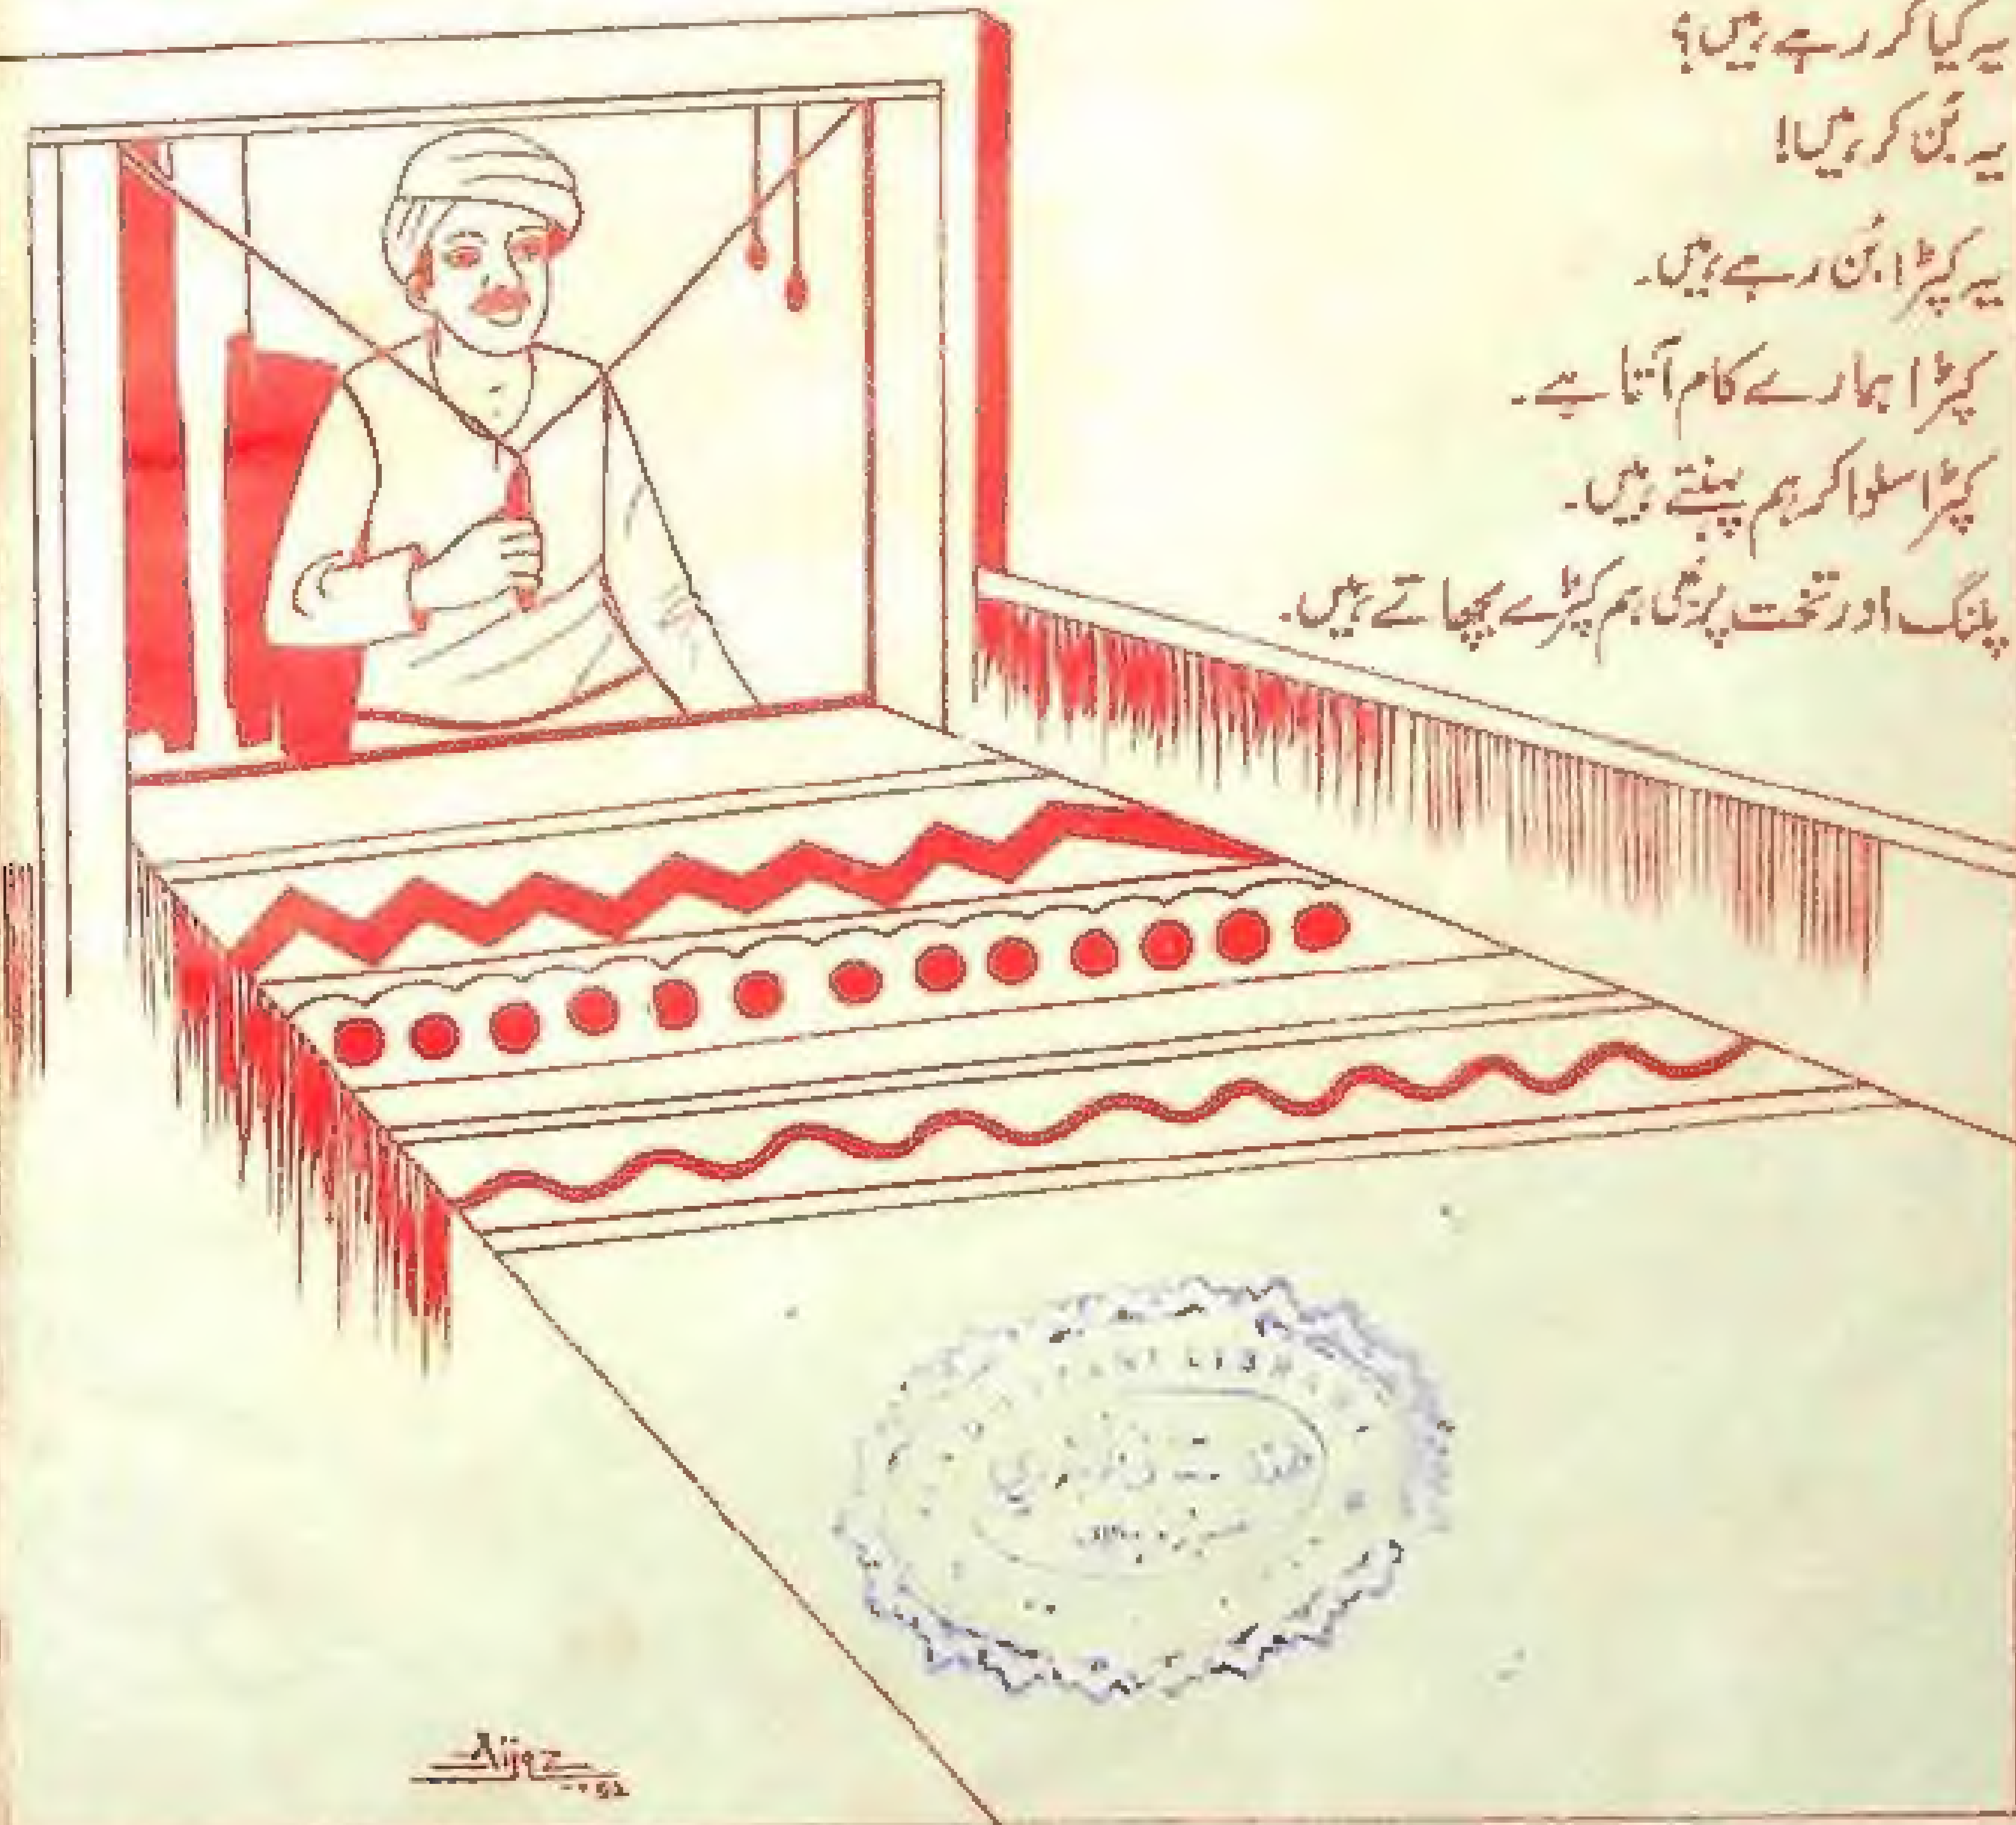 یہ کیا کر رہے ہیں؟
یہ بُن کر ہیں!
یہ کپڑا بُن رہے ہیں۔
کپڑا ہمارے کام آتا ہے۔
کپڑا سلوا کر ہم پہنتے ہیں۔
پلنگ اور تخت پر بھی ہم کپڑے بچھاتے ہیں۔
Aijaz